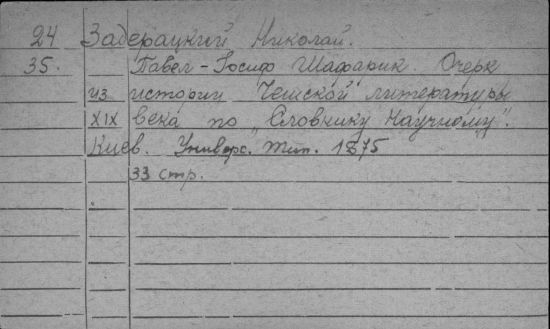 24 Задерацкий Николай.
35. Павел-Іосиф Шафарик. Очерк
из истории Чешской литературы
XIX века по „Словнику Научному".
Киев. Универс. тип. 1875
33 стр.